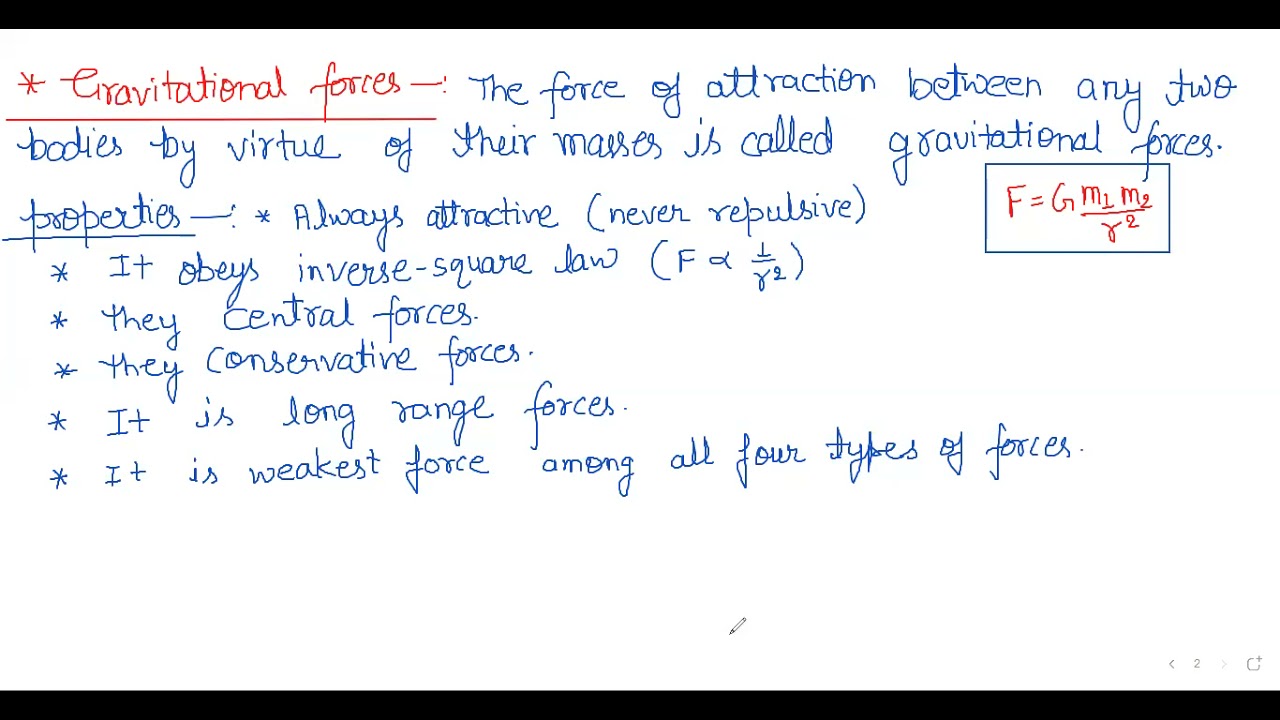 * Gravitational forces —: The force of attraction between any two
bodies by virtue of their masses is called gravitational forces.
F = G m₁ m₂ / r²
properties —: * Always attractive (never repulsive)
* It obeys inverse-square law (F ∝ 1/r²)
* They central forces.
* They conservative forces.
* It is long range forces.
* It is weakest force among all four types of forces.
2